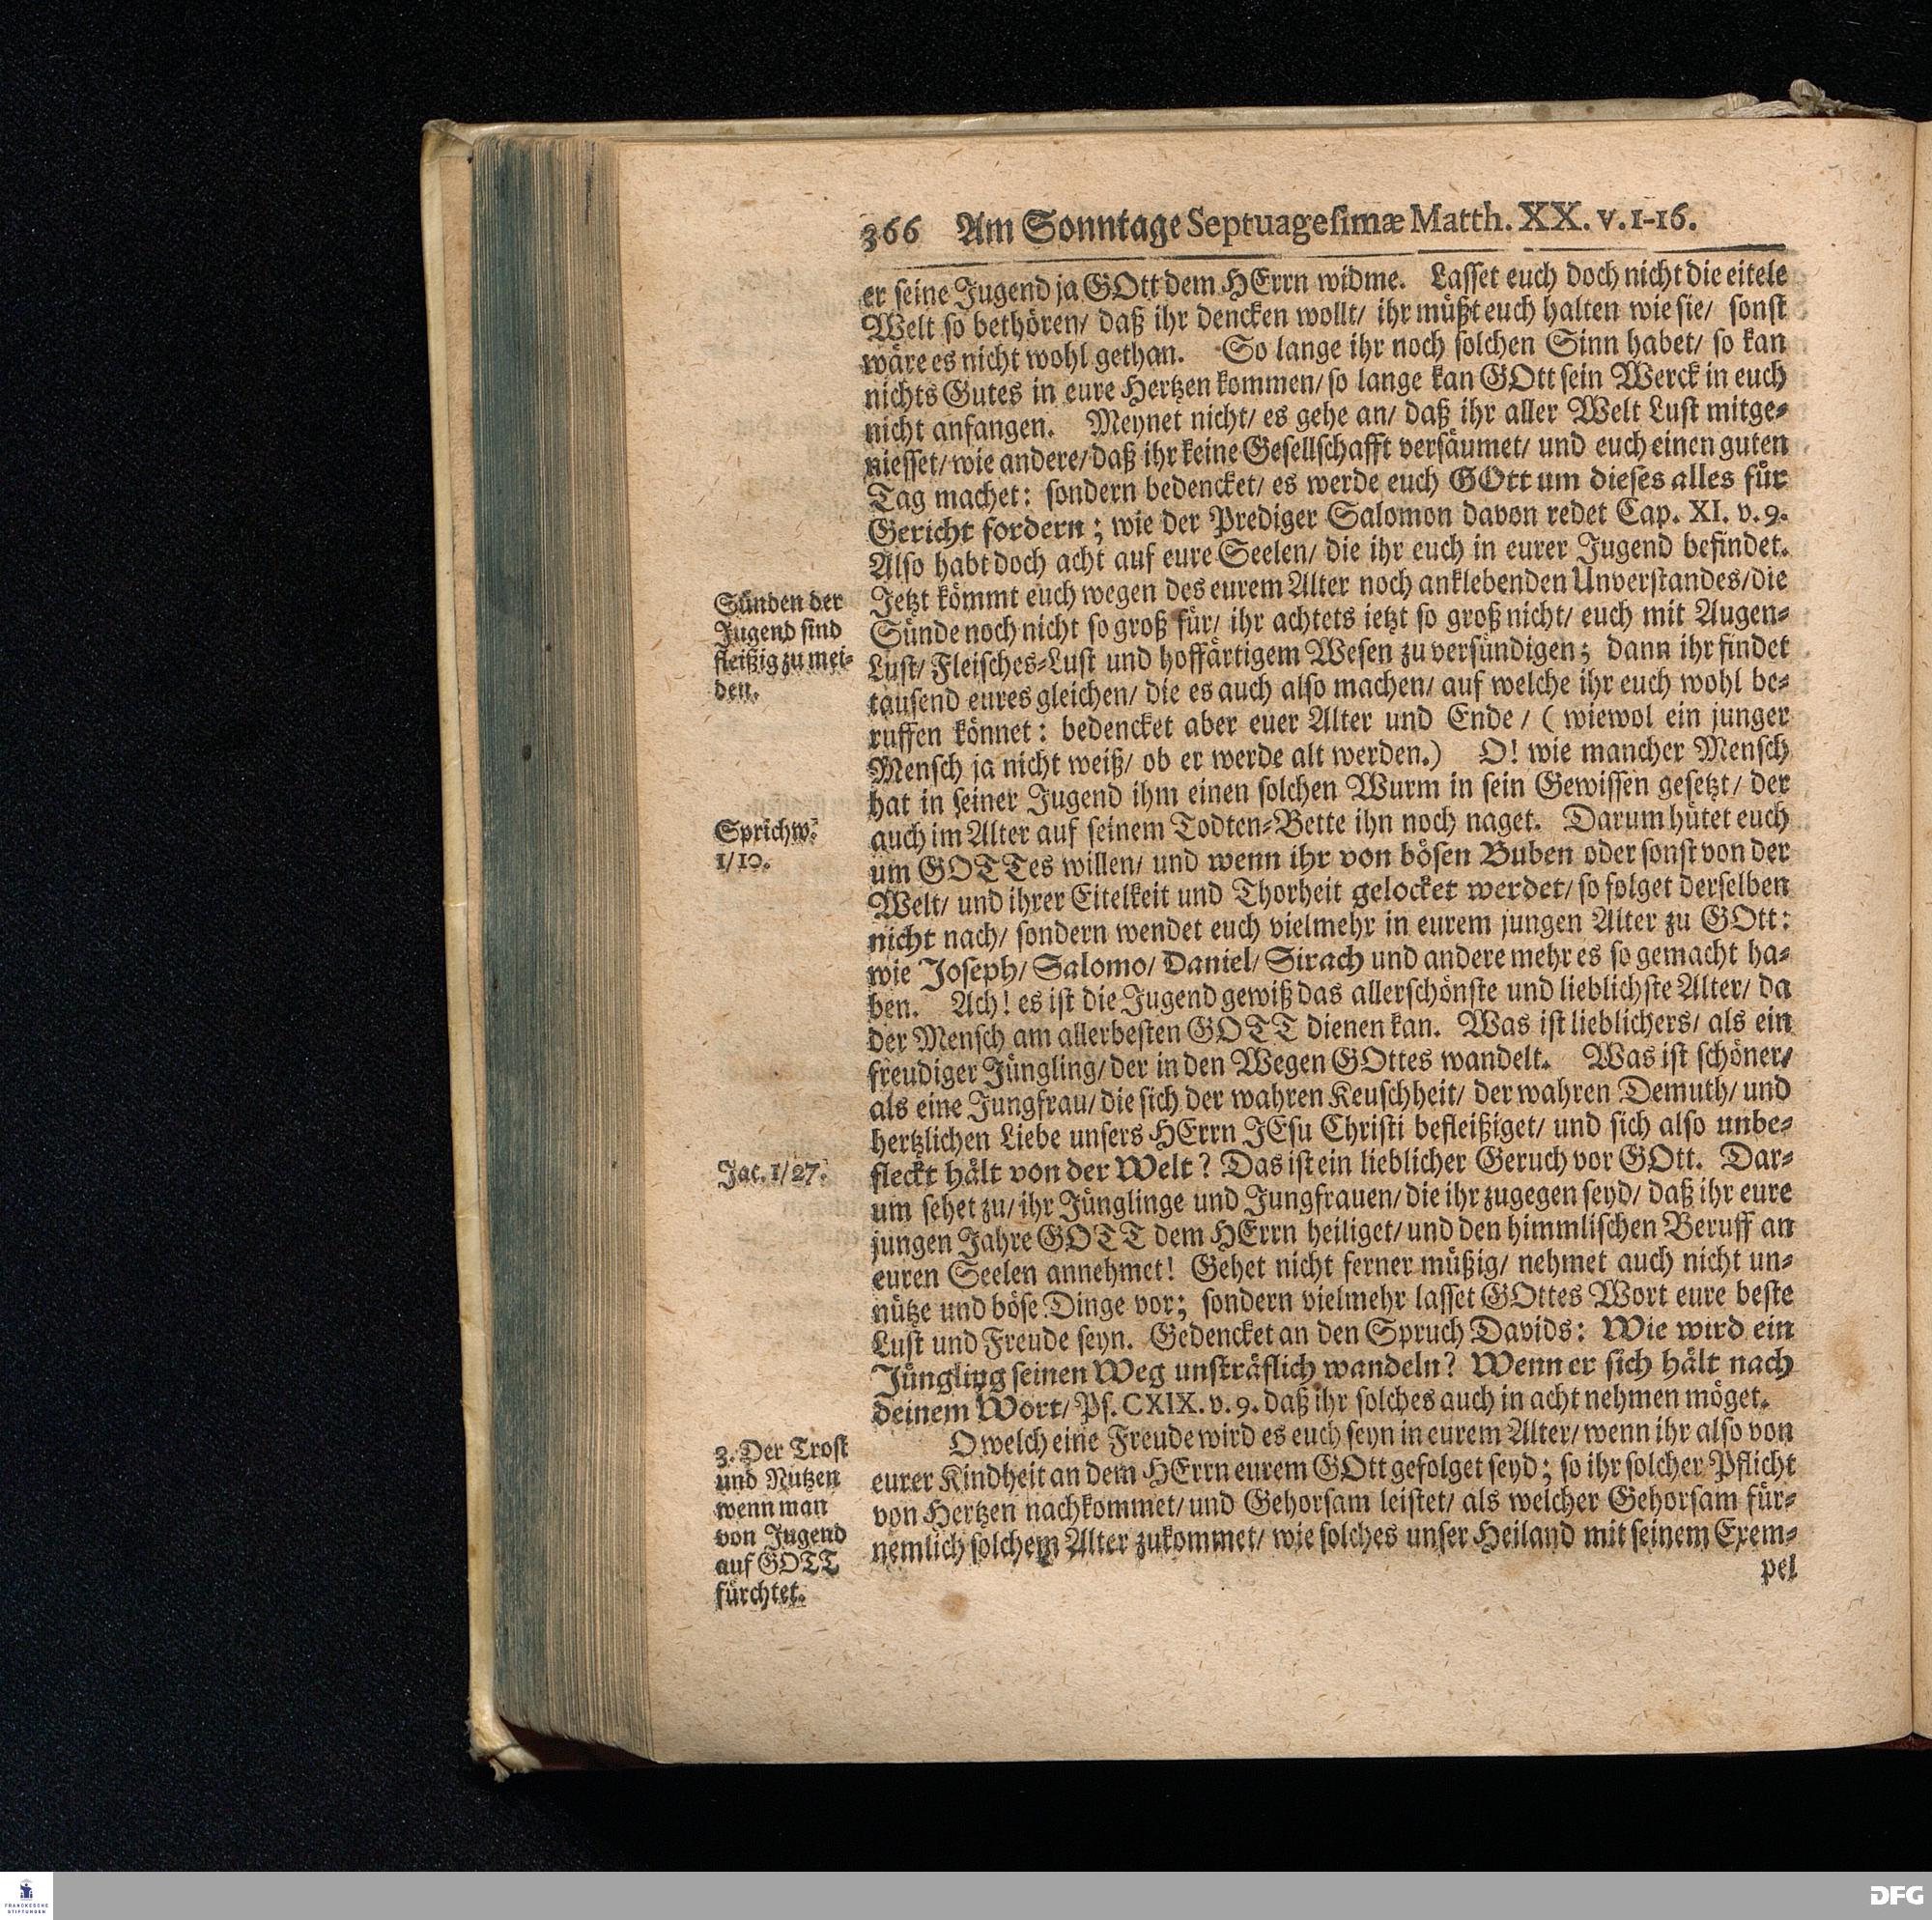 366 Am Sonntage Septuagesimæ Matth. XX. v. 1-16.
er seine Jugend ja GOtt dem HErrn widme. Lasset euch doch nicht die eitele
Welt so bethören/ daß ihr dencken wollt/ ihr müßt euch halten wie sie/ sonst
wäre es nicht wohl gethan. So lange ihr noch solchen Sinn habet/ so kan
nichts Gutes in eure Hertzen kommen/ so lange kan GOtt sein Werck in euch
nicht anfangen. Meynet nicht/ es gehe an/ daß ihr aller Welt Lust mitge-
niesset/ wie andere/ daß ihr keine Gesellschafft versäumet/ und euch einen guten
Tag machet: sondern bedencket/ es werde euch GOtt um dieses alles für
Gericht fordern; wie der Prediger Salomon davon redet Cap. XI. v. 9.
Also habt doch acht auf eure Seelen/ die ihr euch in eurer Jugend befindet.
Jetzt kömmt euch wegen des eurem Alter noch anklebenden Unverstandes/ die
Sünde noch nicht so groß für/ ihr achtets ietzt so groß nicht/ euch mit Augen-
Lust/ Fleisches-Lust und hoffärtigem Wesen zu versündigen; dann ihr findet
tausend eures gleichen/ die es auch also machen/ auf welche ihr euch wohl be-
ruffen könnet: bedencket aber euer Alter und Ende/ (wiewol ein junger
Mensch ja nicht weiß/ ob er werde alt werden.) O! wie mancher Mensch
hat in seiner Jugend ihm einen solchen Wurm in sein Gewissen gesetzt/ der
auch im Alter auf seinem Todten-Bette ihn noch naget. Darum hütet euch
um GOTTes willen/ und wenn ihr von bösen Buben oder sonst von der
Welt/ und ihrer Eitelkeit und Thorheit gelocket werdet/ so folget derselben
nicht nach/ sondern wendet euch vielmehr in eurem jungen Alter zu GOtt:
wie Joseph/ Salomo/ Daniel/ Sirach und andere mehr es so gemacht ha-
ben. Ach! es ist die Jugend gewiß das allerschönste und lieblichste Alter/ da
der Mensch am allerbesten GOTT dienen kan. Was ist lieblichers/ als ein
freudiger Jüngling/ der in den Wegen GOttes wandelt. Was ist schöner/
als eine Jungfrau/ die sich der wahren Keuschheit/ der wahren Demuth/ und
hertzlichen Liebe unsers HErrn JEsu Christi befleißiget/ und sich also unbe-
fleckt hält von der Welt? Das ist ein lieblicher Geruch vor GOtt. Dar-
um sehet zu/ ihr Jünglinge und Jungfrauen/ die ihr zugegen seyd/ daß ihr eure
jungen Jahre GOTT dem HErrn heiliget/ und den himmlischen Beruff an
euren Seelen annehmet! Gehet nicht ferner müßig/ nehmet auch nicht un-
nütze und böse Dinge vor; sondern vielmehr lasset GOttes Wort eure beste
Lust und Freude seyn. Gedencket an den Spruch Davids: Wie wird ein
Jüngling seinen Weg unsträflich wandeln? Wenn er sich hält nach
deinem Wort/ Ps. CXIX. v. 9. daß ihr solches auch in acht nehmen möget.
O welch eine Freude wird es euch seyn in eurem Alter/ wenn ihr also von
eurer Kindheit an dem HErrn eurem GOtt gefolget seyd; so ihr solcher Pflicht
von Hertzen nachkommet/ und Gehorsam leistet/ als welcher Gehorsam für-
nemlich solchem Alter zukommet/ wie solches unser Heiland mit seinem Exem-
pel
Sünden der
Jugend sind
fleißig zu mei-
den.
Sprichw.
1/10.
Jac. 1/27.
3. Der Trost
und Nutzen
wenn man
von Jugend
auf GOTT
fürchtet.
FRANCKESCHE
STIFTUNGEN
DFG